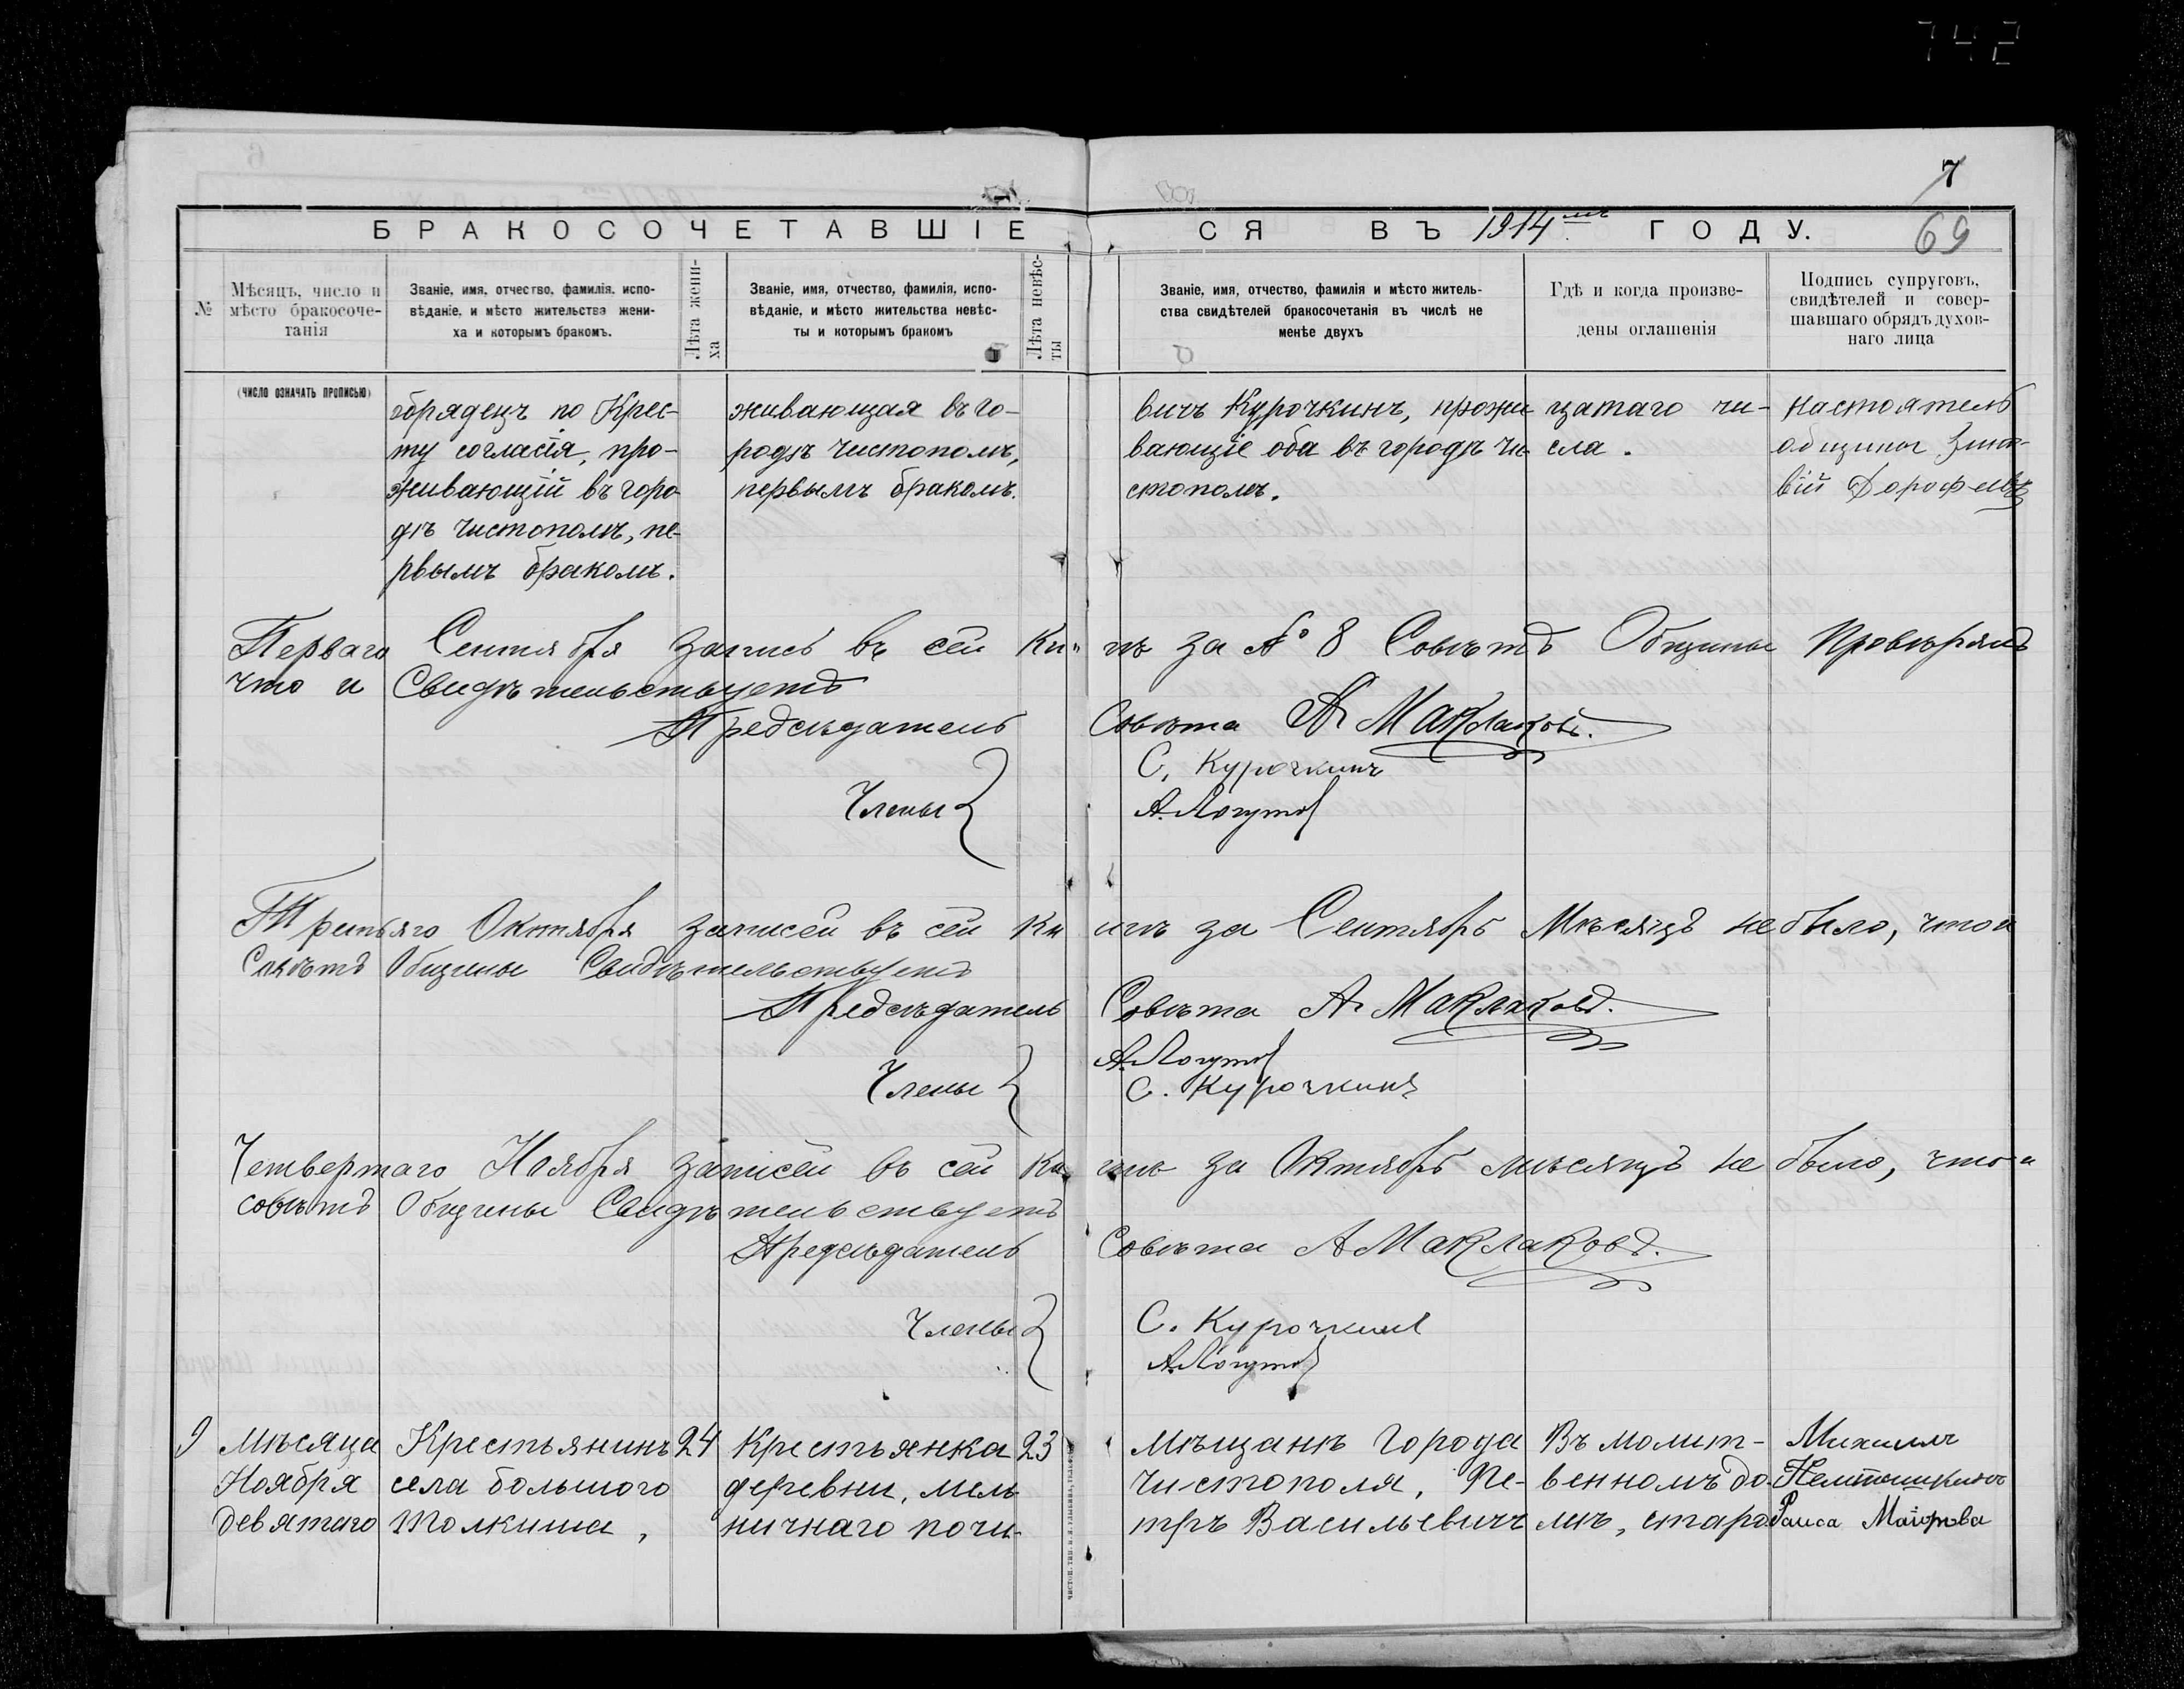 742
7
69
БРАКОСОЧЕТАВШІЕ СЯ ВЪ 1914мъ ГОДУ.
№
Мѣсяцъ, число и
мѣсто бракосоче-
танія
Званіе, имя, отчество, фамилія, испо-
вѣданіе, и мѣсто жительства жени-
ха и которымъ бракомъ.
Лѣта жени-
ха
Званіе, имя, отчество, фамилія, испо-
вѣданіе, и мѣсто жительства невѣс-
ты и которымъ бракомъ
Лѣта невѣс-
ты
Званіе, имя, отчество, фамилія и мѣсто житель-
ства свидѣтелей бракосочетанія въ числѣ не
менѣе двухъ
Гдѣ и когда произве-
дены оглашенія
Подпись супруговъ,
свидѣтелей и совер-
шавшаго обрядъ духов-
наго лица
(число означать прописью)
обрядецъ по Крес-
ту согласія, про-
живающій въ горо-
дѣ Чистополѣ, пе-
рвымъ бракомъ.
живающая въ го-
родѣ Чистополѣ,
первымъ бракомъ.
вичъ Курочкинъ, прожи-
вающіе оба въ городѣ Чи-
стополѣ.
цатаго чи-
сла.
Настоятель
общины
вій Дорофеевъ
Перваго Сентября Запись въ сей Кни гѣ за № 8 Совѣтъ Общины Провѣрялъ
что и Свидѣтельствуетъ
Предсѣдатель Совѣта А Маклаковъ.
Члены
С. Курочкинъ
А. Логутов
Третьяго Октября записей въ сей Кн игѣ за Сентябрь Мѣсяцъ не было, что и
Совѣтъ Общины Свидѣтельствуетъ
Предсѣдатель Совѣта А Маклаковъ.
Члены
А. Логутов
С. Курочкинъ
Четвертаго Ноября записей въ сей Кн игѣ за Октябрь мѣсяцъ не было, что и
совѣтъ Общины Свидѣтельствуетъ
Предсѣдатель Совѣта А Маклаковъ.
Члены
С. Курочкинъ
А. Логутов
9
Мѣсяца
Ноября
девятаго
Крестьянинъ
села большого
Толкиша,
24
Крестьянка
деревни, мель-
ничнаго почи-
23
Мѣщанѣ Города
Чистополя, Пе-
тръ Васильевичъ
Въ молит-
венномъ до-
мѣ, старо
Михаилъ
Раиса Маіорова